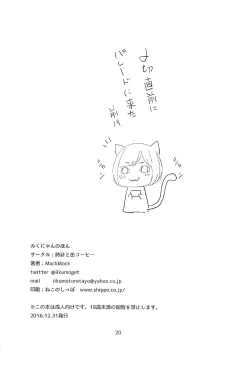 〆切直前に
パレードに来た
前川
みくにゃんのほん
サークル;時計と缶コーヒー
著者;MockMock
twitter @iikumoget
mail iikumotoretayo@yahoo.co.jp
印刷;ねこのしっぽ www.shippo.co.jp/
※この本は成人向けです。18歳未満の閲覧を禁止します。
2016.12.31発行
20